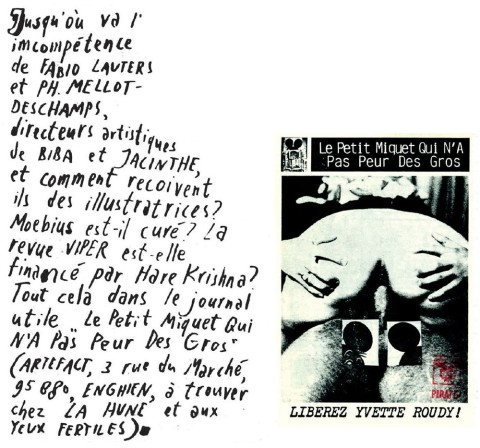 Jusqu'où va l'
imcompétence
de FABIO LAUTERS
et PH. MELLOT-
DESCHAMPS,
directeurs artistiques
de BIBA et JACINTHE,
et comment recoivent
ils des illustratrices?
Moebius est-il curé? La
revue VIPER est-elle
financé par Hare Krishna?
Tout cela dans le journal
utile "Le Petit Miquet Qui
N'A Pas Peur Des Gros"
(ARTEFACT, 3 rue du Marché,
95 880, ENGHIEN, à trouver
chez LA HUNE et aux
YEUX FERTILES).
Le Petit Miquet Qui N'A
Pas Peur Des Gros
PIRATE
LIBEREZ YVETTE ROUDY!